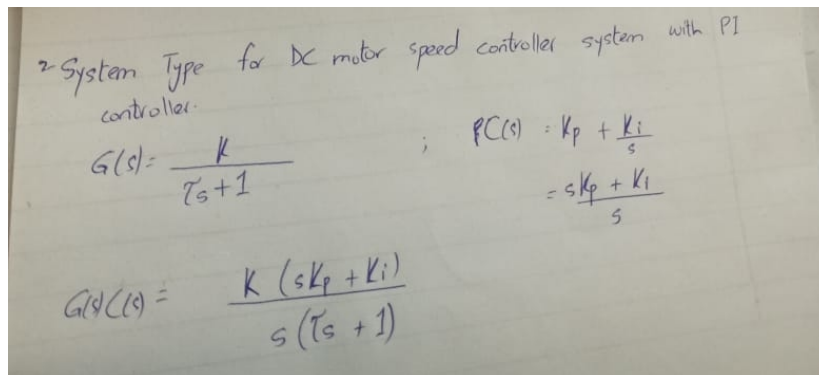 2- System Type for DC motor speed controller system with PI
controller.
G(s) = K / (τs + 1) ; C(s) = Kp + Ki / s
= (sKp + Ki) / s
G(s)C(s) = K (sKp + Ki) / s(τs + 1)